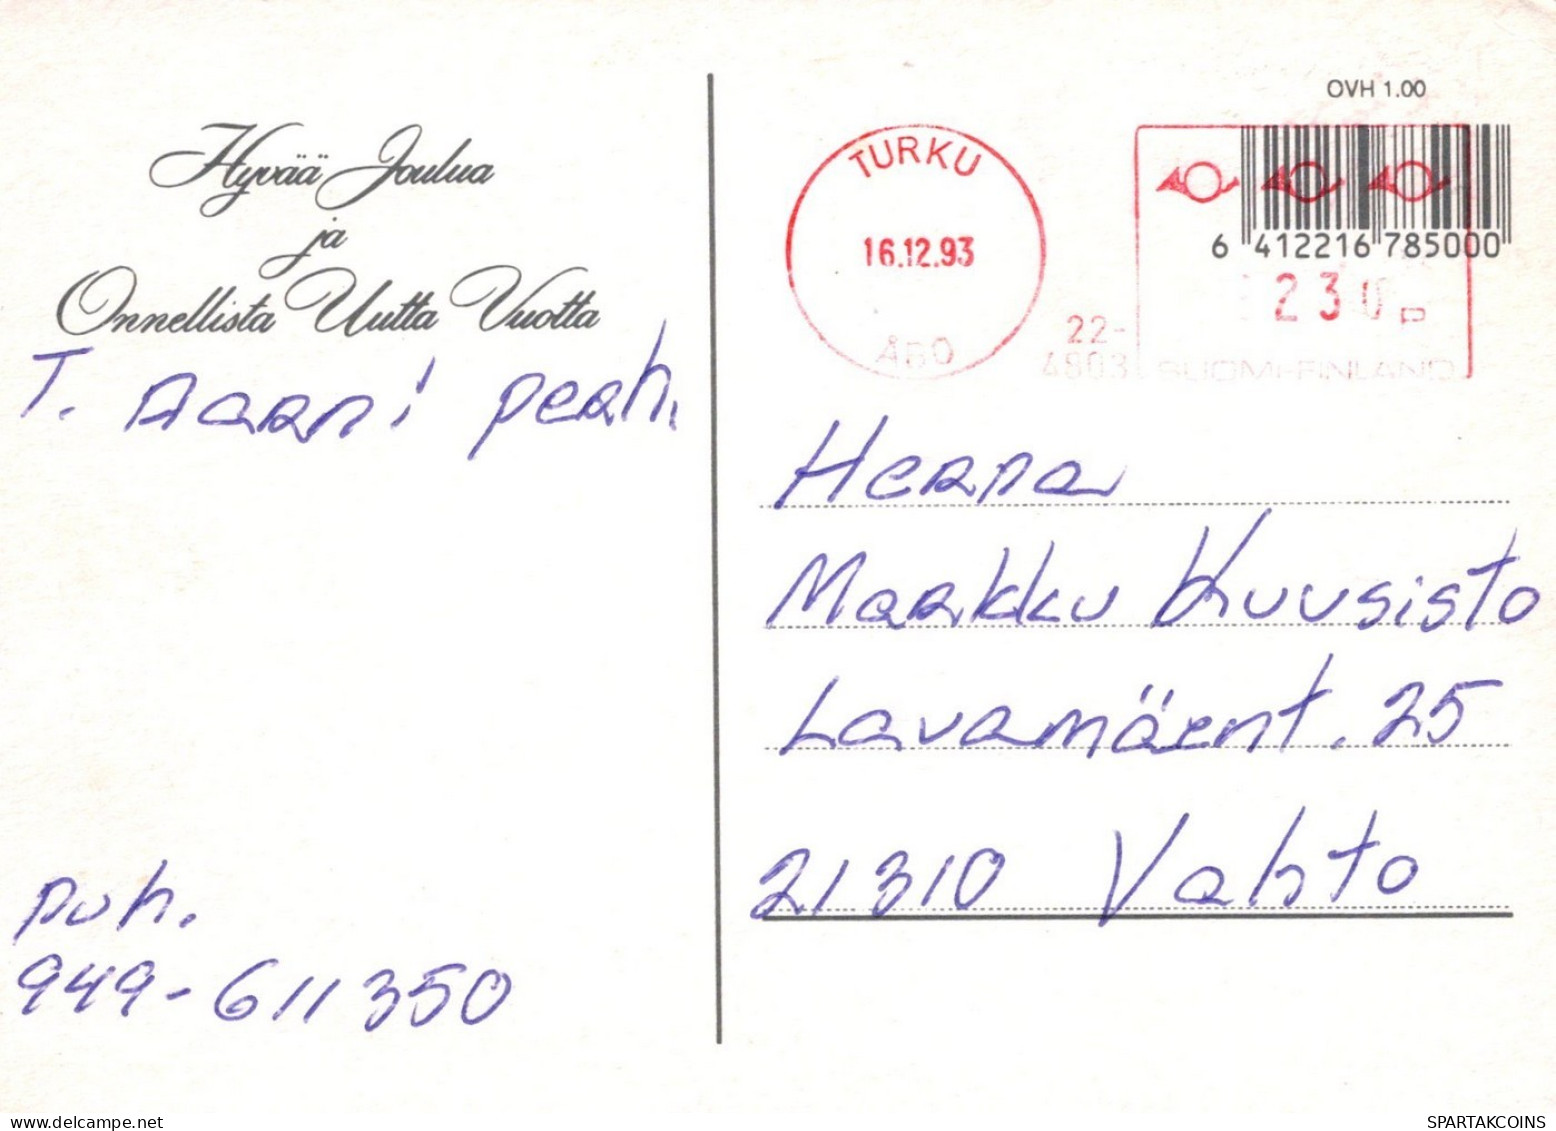 Hyvää Joulua
ja
Onnellista Uutta Vuotta
T. Aarni perh.
puh.
949-611350
OVH 1.00
TURKU
16.12.93
ÅBO
22-
4803
6 412216 785000
230 p
SUOMI-FINLAND
Herra
Markku Kuusisto
Lavamäent. 25
21310 Vahto
delcampe.net
SPARTAKCOINS